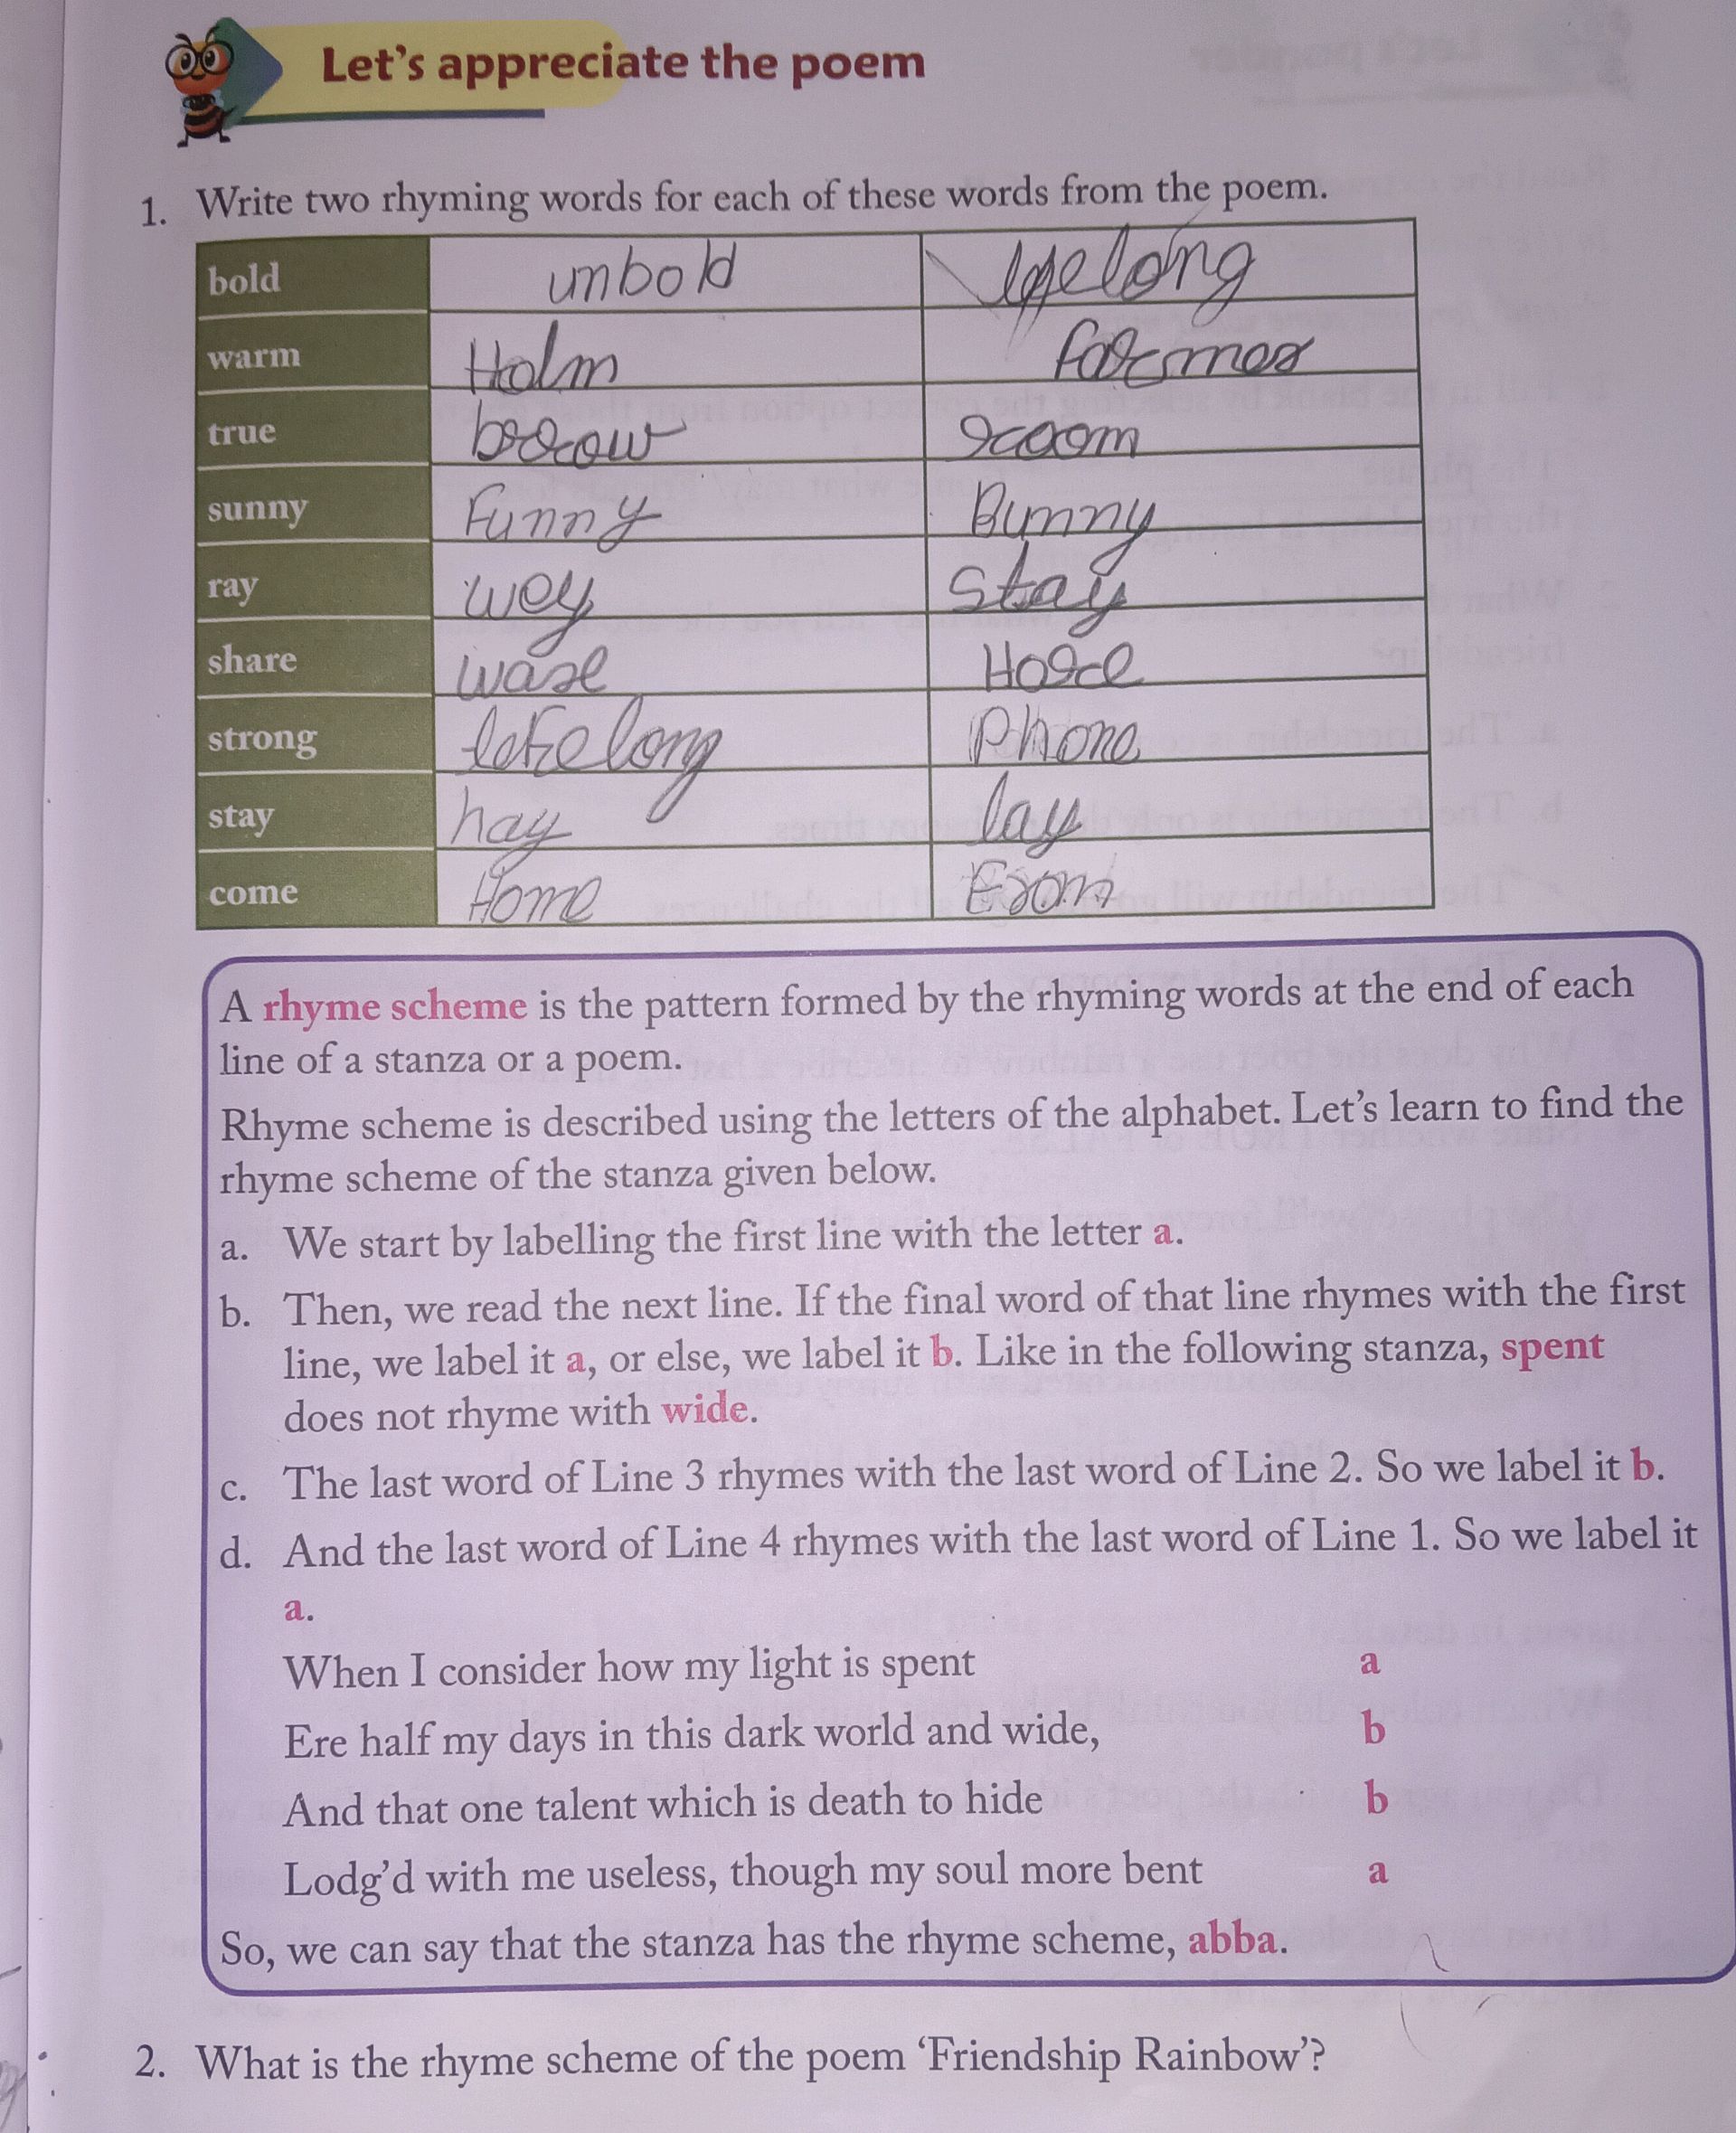 Let's appreciate the poem
1. Write two rhyming words for each of these words from the poem.
bold unbold
warm Holm
true
sunny Funny Bunny
ray wey stay
share
strong Phone
stay hay lay
come Home From
A rhyme scheme is the pattern formed by the rhyming words at the end of each
line of a stanza or a poem.
Rhyme scheme is described using the letters of the alphabet. Let's learn to find the
rhyme scheme of the stanza given below.
a. We start by labelling the first line with the letter a.
b. Then, we read the next line. If the final word of that line rhymes with the first
line, we label it a, or else, we label it b. Like in the following stanza, spent
does not rhyme with wide.
c. The last word of Line 3 rhymes with the last word of Line 2. So we label it b.
d. And the last word of Line 4 rhymes with the last word of Line 1. So we label it
a.
When I consider how my light is spent a
Ere half my days in this dark world and wide, b
And that one talent which is death to hide b
Lodg'd with me useless, though my soul more bent a
So, we can say that the stanza has the rhyme scheme, abba.
2. What is the rhyme scheme of the poem 'Friendship Rainbow'?